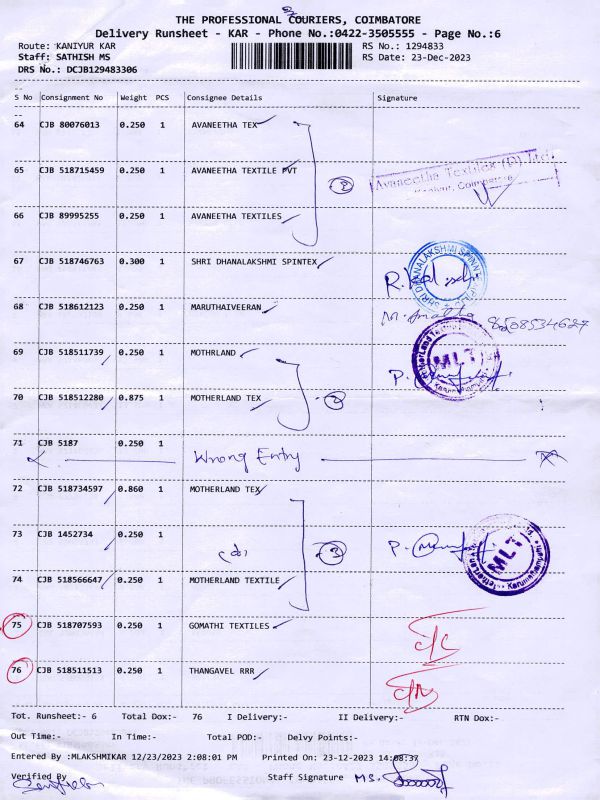 THE PROFESSIONAL COURIERS, COIMBATORE
Delivery Runsheet - KAR - Phone No.:0422-3505555 - Page No.:6
Route: KANIYUR KAR RS No.: 1294833
Staff: SATHISH MS RS Date: 23-Dec-2023
DRS No.: DCJB129483306
S No Consignment No Weight PCS Consignee Details Signature
64 CJB 80076013 0.250 1 AVANEETHA TEX
65 CJB 518715459 0.250 1 AVANEETHA TEXTILE PVT
Avaneetha Textiles (P) Ltd
66 CJB 89995255 0.250 1 AVANEETHA TEXTILES
67 CJB 518746763 0.300 1 SHRI DHANALAKSHMI SPINTEX
SHRI DHANALAKSHMI
68 CJB 518612123 0.250 1 MARUTHAIVEERAN
8508534627
69 CJB 518511739 0.250 1 MOTHRLAND
MLT
70 CJB 518512280 0.875 1 MOTHERLAND TEX 2
71 CJB 5187 0.250 1
Wrong Entry
72 CJB 518734597 0.860 1 MOTHERLAND TEX
73 CJB 1452734 0.250 1 3
MLT
74 CJB 518566647 0.250 1 MOTHERLAND TEXTILE
75 CJB 518707593 0.250 1 GOMATHI TEXTILES
76 CJB 518511513 0.250 1 THANGAVEL RRR
Tot. Runsheet:- 6 Total Dox:- 76 I Delivery:- II Delivery:- RTN Dox:-
Out Time:- In Time:- Total POD:- Delvy Points:-
Entered By :MLAKSHMIKAR 12/23/2023 2:08:01 PM Printed On: 23-12-2023 14:08:37
Verified By Staff Signature MS.